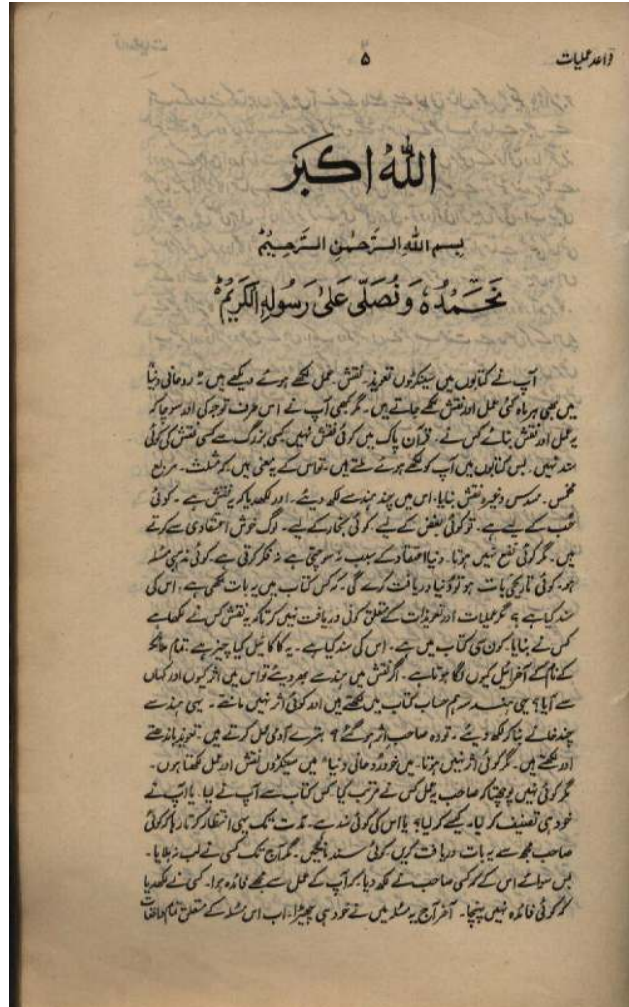 قواعد عملیات
۵
اللہُ اکبَر
بِسمِ اللہِ الرَّحمٰنِ الرَّحِیمِ
نَحمَدُہٗ وَنُصَلّی عَلیٰ رَسُولِہِ الکَرِیمُ
آپ نے کتابوں میں سینکڑوں تعویذ۔ نقش۔ عمل لکھے ہوئے دیکھے ہیں۔ روحانی دنیا
میں بھی ہر ماہ کئی عمل اور نقش لکھے جاتے ہیں۔ مگر کبھی آپ نے اس طرف توجہ کی اور سوچا کہ
یہ عمل اور نقش بنائے کس نے۔ قرآن پاک میں کوئی نقش نہیں۔ کسی بزرگ سے کسی نقش کی کوئی
سند نہیں۔ بس کتابوں میں آپ کو لکھے ہوئے ملتے ہیں۔ تو اس کے یہ معنی ہیں۔ کہ مثلث۔ مربع
مخمس۔ مسدس وغیرہ نقش بنایا۔ اس میں چند ہندسے لکھ دیئے۔ اور لکھدیا کہ یہ نقش ہے۔ کوئی
حُب کے لیے ہے۔ تو کوئی بغض کے لیے کوئی بخار کے لیے۔ لوگ خوش اعتقادی سے کرتے
ہیں۔ مگر کوئی نفع نہیں ہوتا۔ دنیا اعتقاد کے سبب نہ سوچتی ہے نہ فکر کرتی ہے۔ کوئی مذہبی مسئلہ
ہو۔ کوئی تاریخی بات ہو تو دنیا دریافت کرے گی۔ کہ کس کتاب میں یہ بات لکھی ہے۔ اس کی
سند کیا ہے؟ مگر عملیات اور تعویذات کے متعلق کوئی دریافت نہیں کرتا کہ یہ نقش کس نے لکھا ہے
کس نے بنایا۔ کون سی کتاب میں ہے۔ اس کی سند کیا ہے۔ یہ کاکائیل کیا چیز ہے؟ تمام
کے نام کے آخر ائیل کیوں لگا ہوتا ہے۔ اگر نقش میں ہندسے بھر دیئے تو اس میں اثر کیوں اور کہاں
سے آیا؟ یہی ہندسہ ہم حساب کتاب میں لکھتے ہیں اور کوئی اثر نہیں مانتے۔ یہی ہندسے
چند خانے بنا کر لکھ دیئے۔ تو وہ صاحب اثر ہو گئے؟ بہتیرے آدمی عمل کرتے ہیں۔ تعویذ باندھتے
اور لکھتے ہیں۔ مگر کوئی اثر نہیں ہوتا۔ میں خود روحانی دنیا میں سیکڑوں نقش اور عمل لکھتا ہوں۔
مگر کوئی نہیں پوچھتا کہ صاحب یہ عمل کس نے مرتب کیا۔ کس کتاب سے آپ نے لیا۔ یا آپ نے
خود ہی تصنیف کر لیا۔ کیسے کر لیا؟ یا اس کی کوئی سند ہے۔ مدت تک یہی انتظار کرتا رہا کہ کوئی
صاحب مجھ سے یہ بات دریافت کریں۔ کوئی سند مانگیں۔ مگر آج تک کسی نے لب نہ ہلایا۔
بس سوائے اس کے کہ کسی صاحب نے لکھ دیا۔ کہ آپ کے عمل سے مجھے فائدہ ہوا۔ کسی نے لکھدیا
کہ کوئی فائدہ نہیں پہنچا۔ آخر آج یہ مسئلہ میں نے خود ہی چھیڑا۔ اب اس مسئلہ کے متعلق تمام